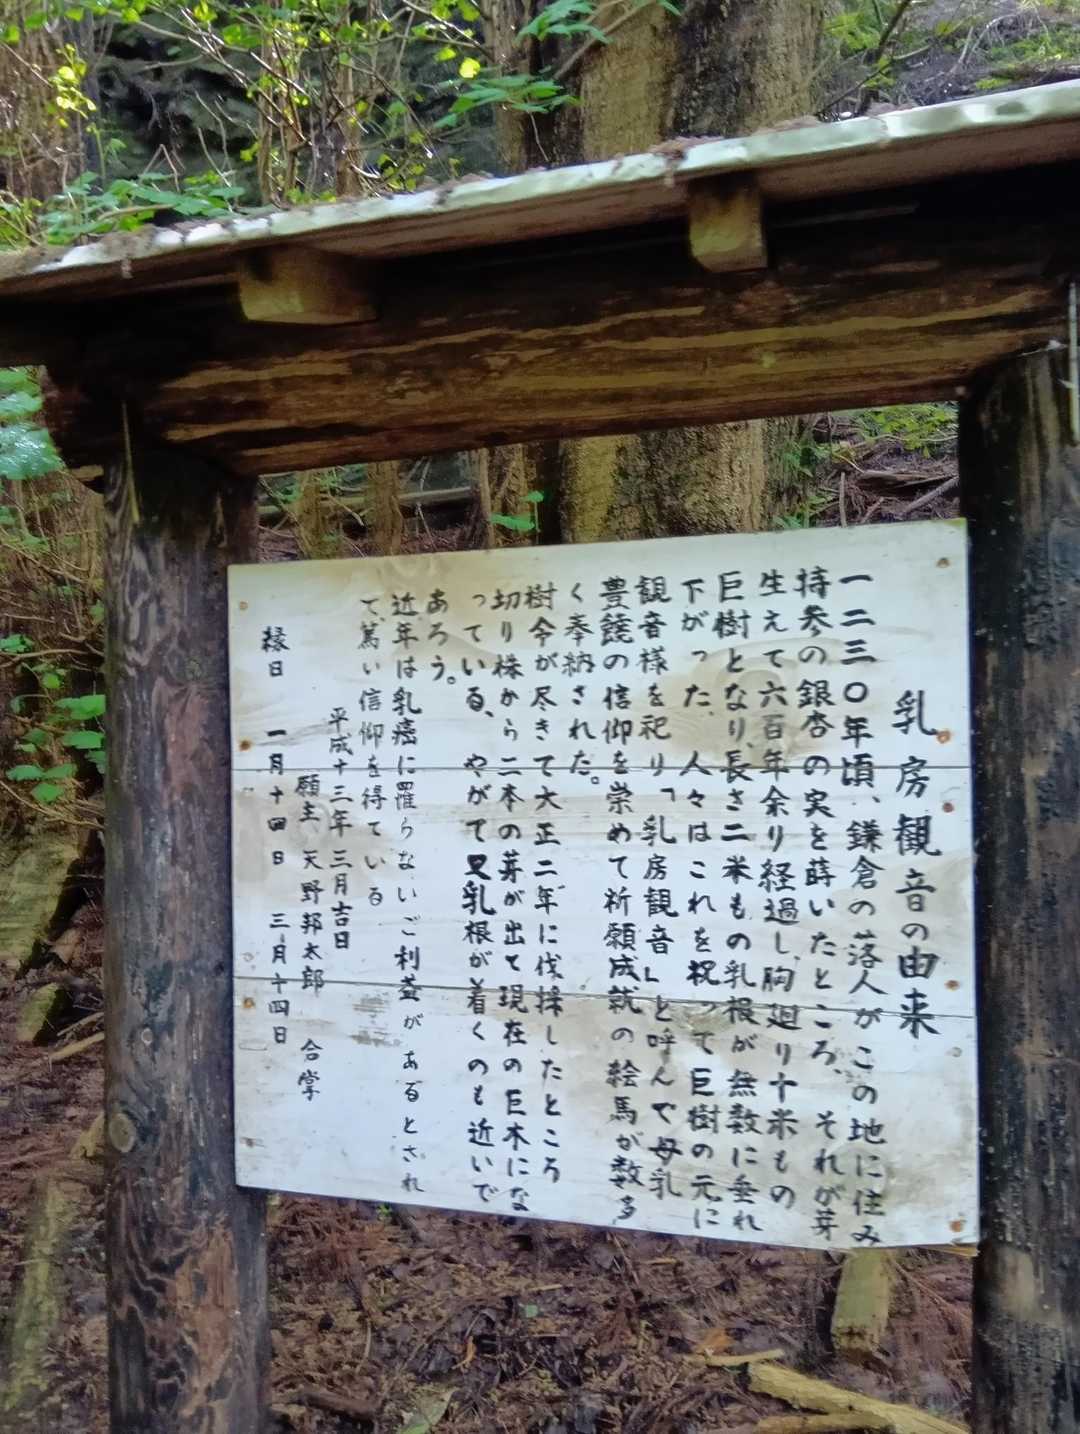 乳房観音の由来
一二三〇年頃、鎌倉の落人がこの地に住み
持参の銀杏の実を蒔いたところ、それが芽
生えて六百年余り経過し、胸廻り十米もの
巨樹となり、長さ二米もの乳根が無数に垂れ
下がった、人々はこれを祝って巨樹の元に
観音様を祀り「乳房観音」と呼んで母乳
豊饒の信仰を崇めて祈願成就の絵馬が数多
く奉納された。
樹令が尽きて大正二年に伐採したところ
切り株から二本の芽が出て現在の巨木にな
っている、やがて又乳根が着くのも近いで
あろう。
近年は乳癌に罹らないご利益があるとされ
て、篤い信仰を得ている
平成十三年三月吉日
願主、天野邦太郎 合掌
縁日 一月十四日 三月十四日